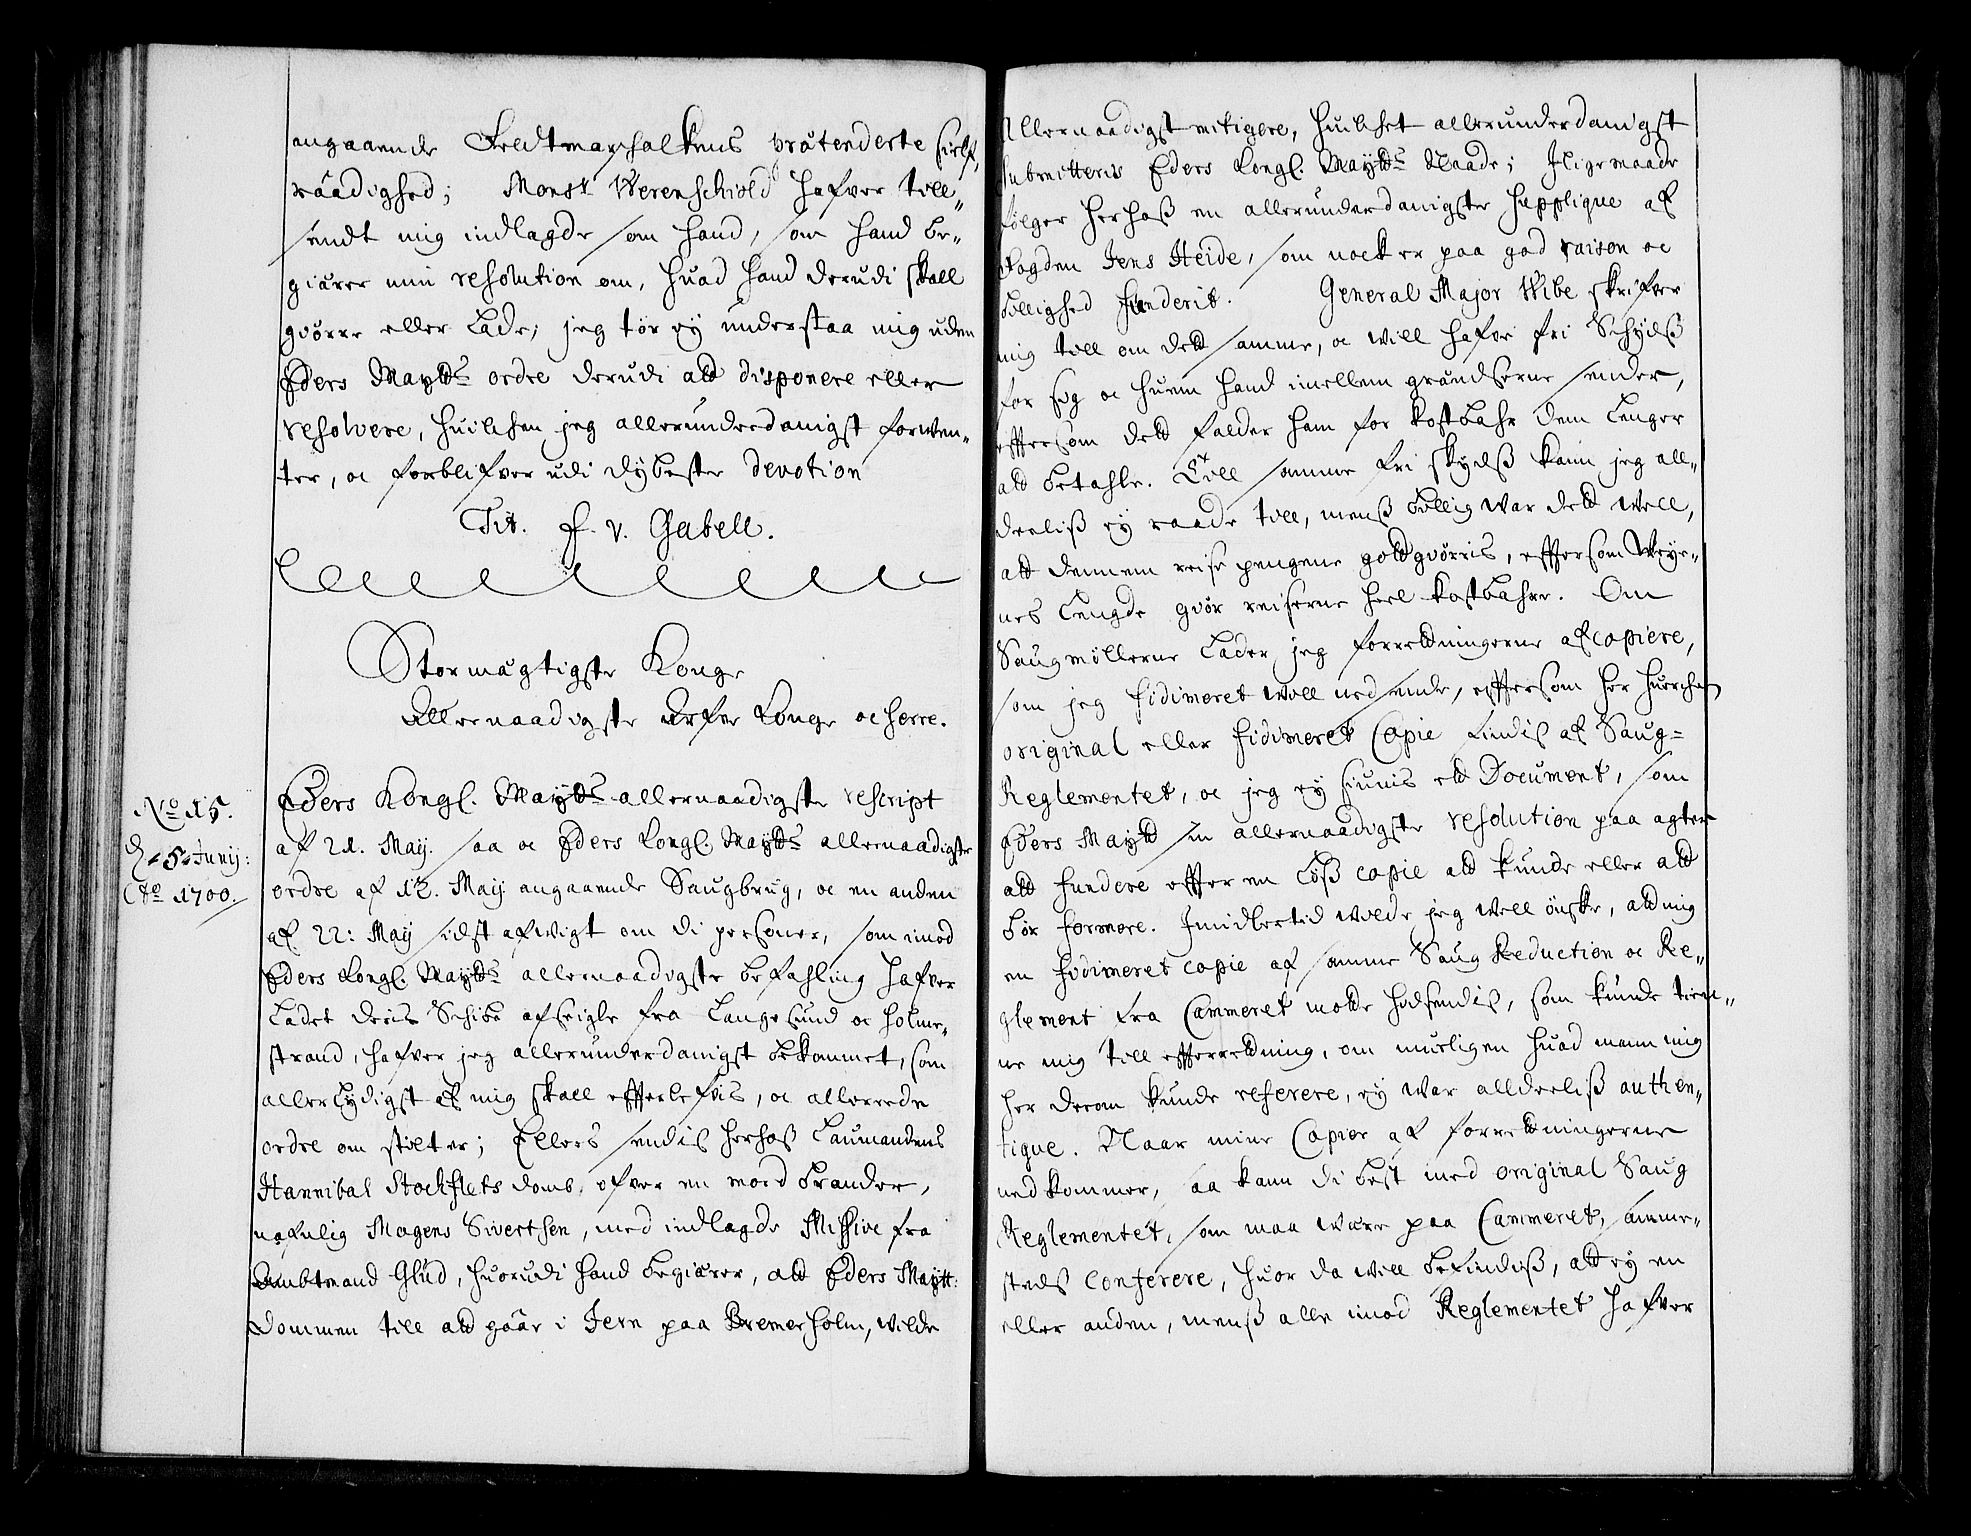 angaaende Feldtmarschalkens prætenderte sielf,
raadighed; Monsr Werenschiold hafver till„
sendt mig indlagde som hand, som hand be„
giærer min resolution om, huad hand derudi skall
giørre eller lade; jeg tør ey understaa mig uden
Eders Maytts ordre derudi att disponere eller
resolvere, huilchen jeg allerunderdanigst forven„
ter, oc forblifver udi dybeste devotion
Tit. F. v. Gabell.
Stormægtigste Konge
Allernaadigste Arfve Konge oc herre.
No 15.
d. 5. Junij:
Ao 1700.
Eders Kongl. Maytts allernaadigste rescript
af 21. May. saa oc Eders Kongl. Maytts allernaadigste
ordre af 12. May angaaende Saugbrug, oc en anden
af 22: May sidst afvigt om di personer, som imod
Eders Kongl. Maytts allernaadigste befahling hafver
ladet deris Schibe afseigle fra Langesund oc Holme„
strand, hafver jeg allerunderdanigst bekommet, som
allerlydigst af mig skall efterlefvis, oc allerede
ordre om stilt er; Ellers sendis herhoß Laumandens
Hannibal Stockflets domb, ofver en mord brander,
nafnlig Mogens Sivertsen, med indlagde Missive fra
Ambtmand Glud, huorudi hand begiærer, att Eders Maytt:
dommen till att gaar i Jern paa Bremerholm, wilde
Allernaadigst mitigere, huilchet allerunderdanigst
submitteris Eders Kongl. Maytts Naade; Jligemaade
følger herhoß en allerunderdanigste supplique af
Fogden Jens Heide, som nock er paa god raison oc
billighed funderit. General Major Wibe skrifver
mig till om dett samme, oc will hafve fri Schydß
for sig oc huem hand imellem grændserne sender,
eftersom dett falder ham for kostbahr dem lenger
att betahle. Till samme fri skydß kand jeg all„
deeliß ey raade till, menß billig war dett well,
att dennem reise pengene gottgiørris, eftersom Weye„
nes lengde giør reiserne heel kostbahre. Om
Saugmøllerne lader jeg forretningerne afcopiere,
som jeg fidimeret well nedsende, eftersom her huerchen
original eller fidimeret Copie findis af Saug=
Reglementet, oc jeg ey siunis ett Document, som
Eders Maytt sin allernaadigste resolution paa agter
att fundere efter en løß copie att kunde eller att
bør formere. Imidlertid wilde jeg well ønske, att mig
en fidimeret copie af samme Saug Reduction oc Re„
glement fra Cammeret motte hidsendis, som kunde tiene„
ne mig till efterretning, om muligen huad mand mig
her derom kunde referere, ey war alldeeliß authen„
tique. Naar mine Copier af forretningerne
nedkommer, saa kand di best med original Saug
Reglementet, som maa være paa Cammeret, samme„
steds conferere, huor da will befindiß, att ey en
eller anden, menß alle imod Reglementet hafver